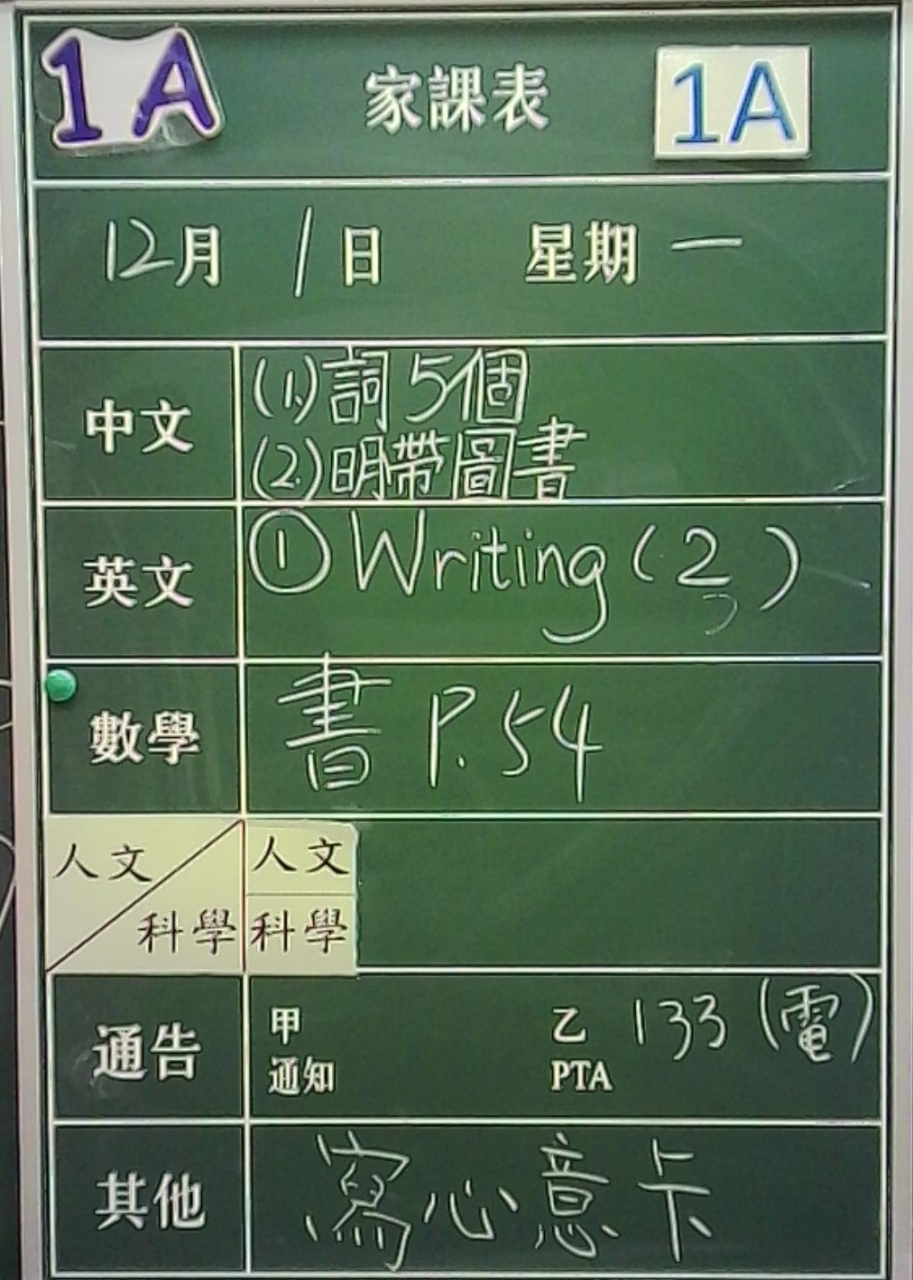 1A 家課表 1A
12月 1日 星期一
中文 (1)詞5個
(2)明帶圖書
英文 ① Writing (2)
數學 書 P.54
人文 人文
科學 科學
通告 甲 乙 133 (電)
通知 PTA
其他 寫心意卡